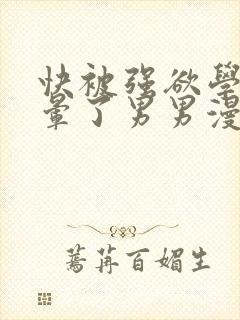 快被强欲學
暈了男男漫
蒿苒百媚生